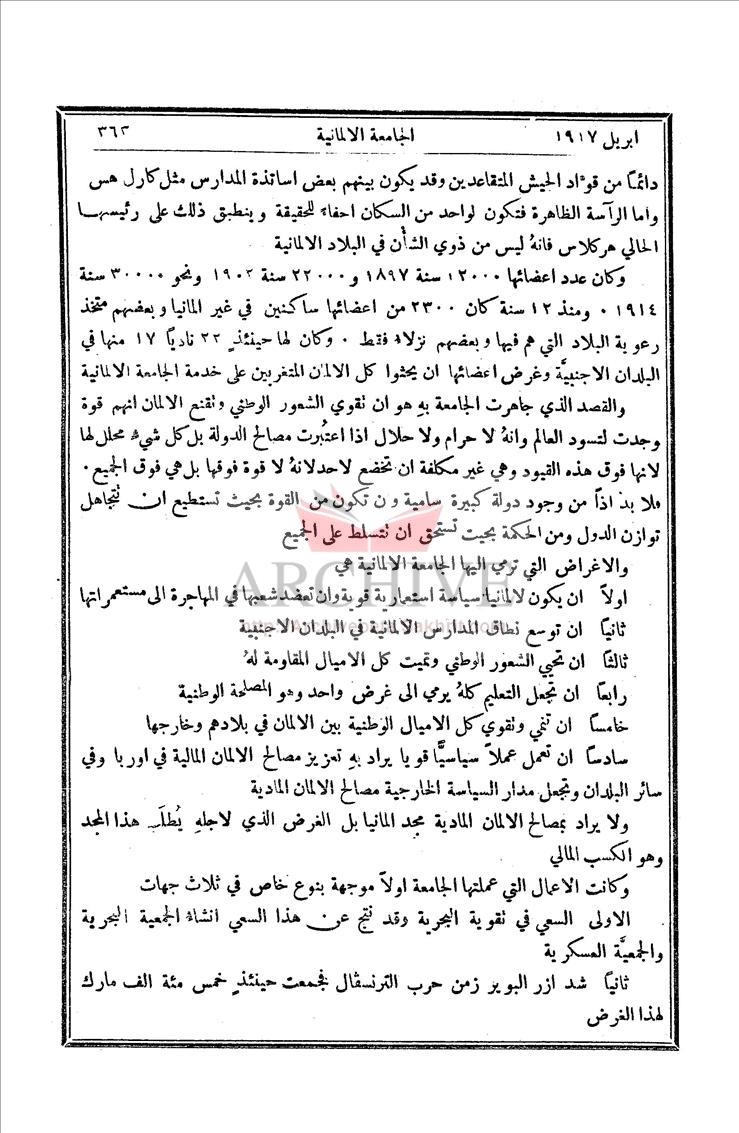 ابريل ١٩١٧ الجامعة الالمانية ٣٦٣
دائماً من قوَّاد الجيش المتقاعدين وقد يكون بينهم بعض اساتذة المدارس مثل كارل هس
واما الرآسة الظاهرة فتكون لواحد من السكان احفاءً للحقيقة وينطبق ذلك على رئيسها
الحالي هركلاس فانهُ ليس من ذوي الشأن في البلاد الالمانية
وكان عدد اعضائها ١٢٠٠٠ سنة ١٨٩٧ و ٢٢٠٠٠ سنة ١٩٠٢ ونحو ٣٠٠٠٠ سنة
١٩١٤ ٠ ومنذ ١٢ سنة كان ٢٣٠٠ من اعضائها ساكنين في غير المانيا وبعضهم متخذ
رعوية البلاد التي هم فيها وبعضهم نزلاء فقط ٠ وكان لها حينئذٍ ٢٢ نادياً ١٧ منها في
البلدان الاجنبيَّة وغرض اعضائها ان يحثوا كل الالمان المتغربين على خدمة الجامعة الالمانية
والقصد الذي جاهرت الجامعة بهِ هو ان تقوي الشعور الوطني وتقنع الالمان انهم قوة
وجدت لتسود العالم وانهُ لا حرام ولا حلال اذا اعتُبرت مصالح الدولة بل كل شيءٍ محلل لها
لانها فوق هذه القيود وهي غير مكلفة ان تخضع لاحد لانهُ لا قوة فوقها بل هي فوق الجميع ٠
فلا بد اذاً من وجود دولة كبيرة سامية وان تكون من القوة بحيث تستطيع ان تتجاهل
توازن الدول ومن الحكمة بحيث تستحق ان تتسلط على الجميع
والاغراض التي ترمي اليها الجامعة الالمانية هي
اولاً ان يكون لالمانيا سياسة استعمارية قوية وان تعضد شعبها في المهاجرة الى مستعمراتها
ثانياً ان توسع نطاق المدارس الالمانية في البلدان الاجنبية
ثالثاً ان تحيي الشعور الوطني وتميت كل الاميال المقاومة لهُ
رابعاً ان تجعل التعليم كلهُ يرمي الى غرض واحد وهو المصلحة الوطنية
خامساً ان تنمي وتقوي كل الاميال الوطنية بين الالمان في بلادهم وخارجها
سادساً ان تعمل عملاً سياسيًّا قويا يراد بهِ تعزيز مصالح الالمان المالية في اوربا وفي
سائر البلدان وتجعل مدار السياسة الخارجية مصالح الالمان المادية
ولا يراد بمصالح الالمان المادية مجد المانيا بل الغرض الذي لاجلهِ يُطلَب هذا المجد
وهو الكسب المالي
وكانت الاعمال التي عملتها الجامعة اولاً موجهة بنوع خاص في ثلاث جهات
الاولى السعي في تقوية البحرية وقد نتج عن هذا السعي انشاءُ الجمعية البحرية
والجمعيَّة العسكرية
ثانياً شد ازر البوير زمن حرب الترنسڤال فجمعت حينئذٍ خمس مئة الف مارك
لهذا الغرض
ARCHIVE